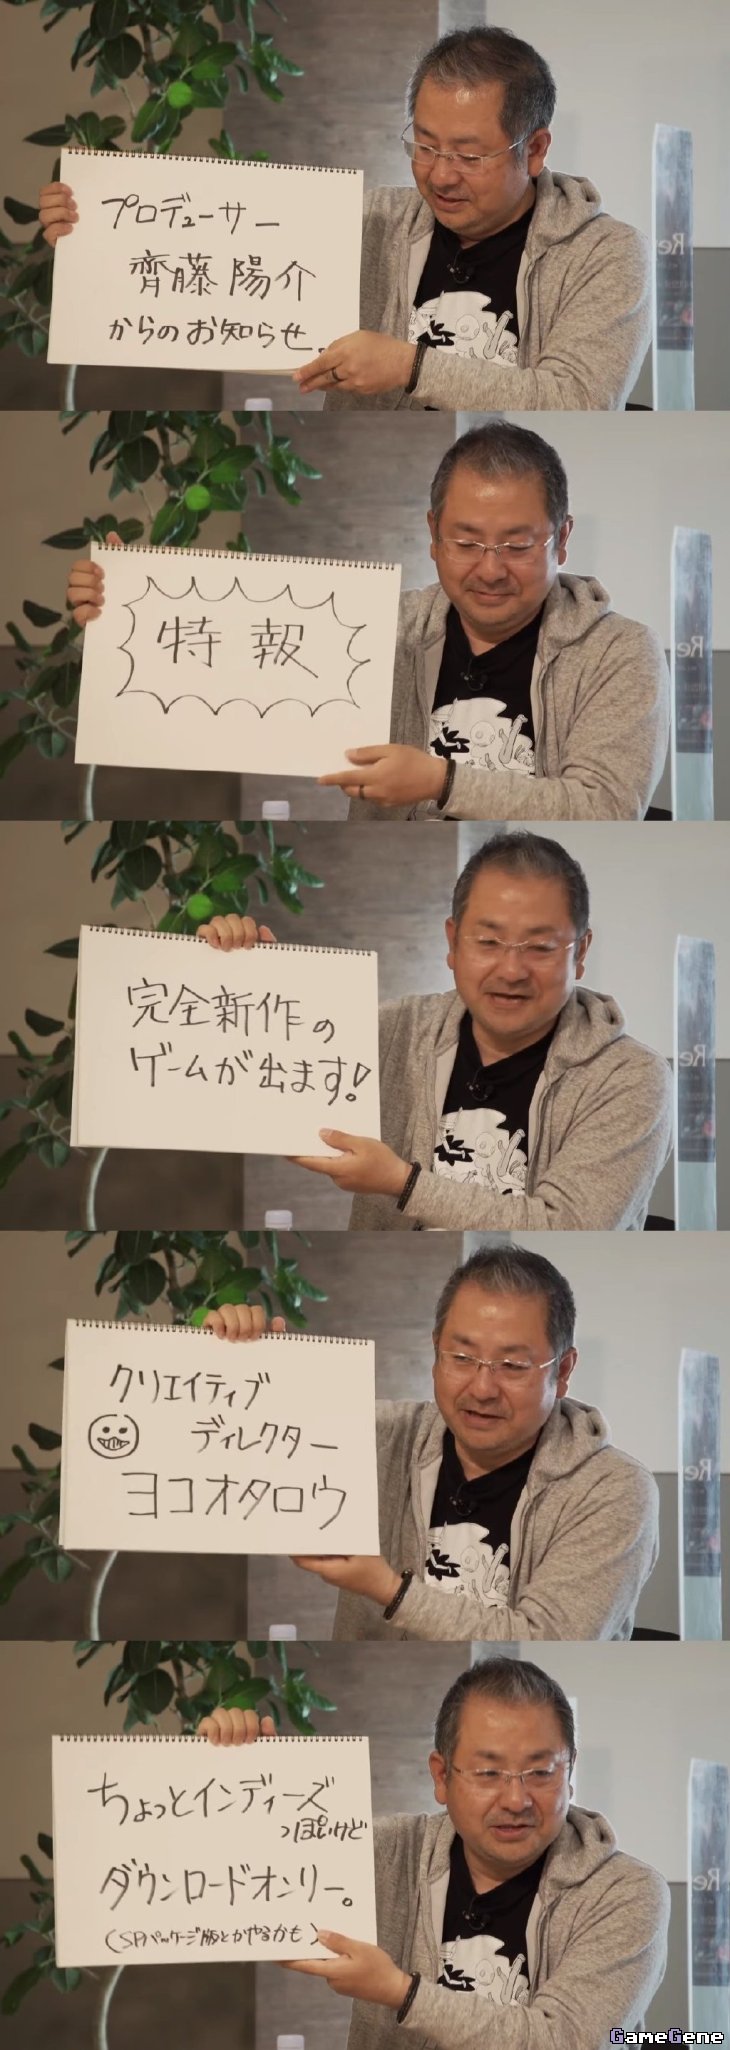 プロデューサー
齊藤陽介
からのお知らせ。
Re
特報
Re
完全新作の
ゲームが出ます!
Re
クリエイティブ
ディレクター
ヨコオタロウ
Re
ちょっとインディーズ
っぽいけど
ダウンロードオンリー。
(SPパッケージ版とかやるかも)
Re
GameGene